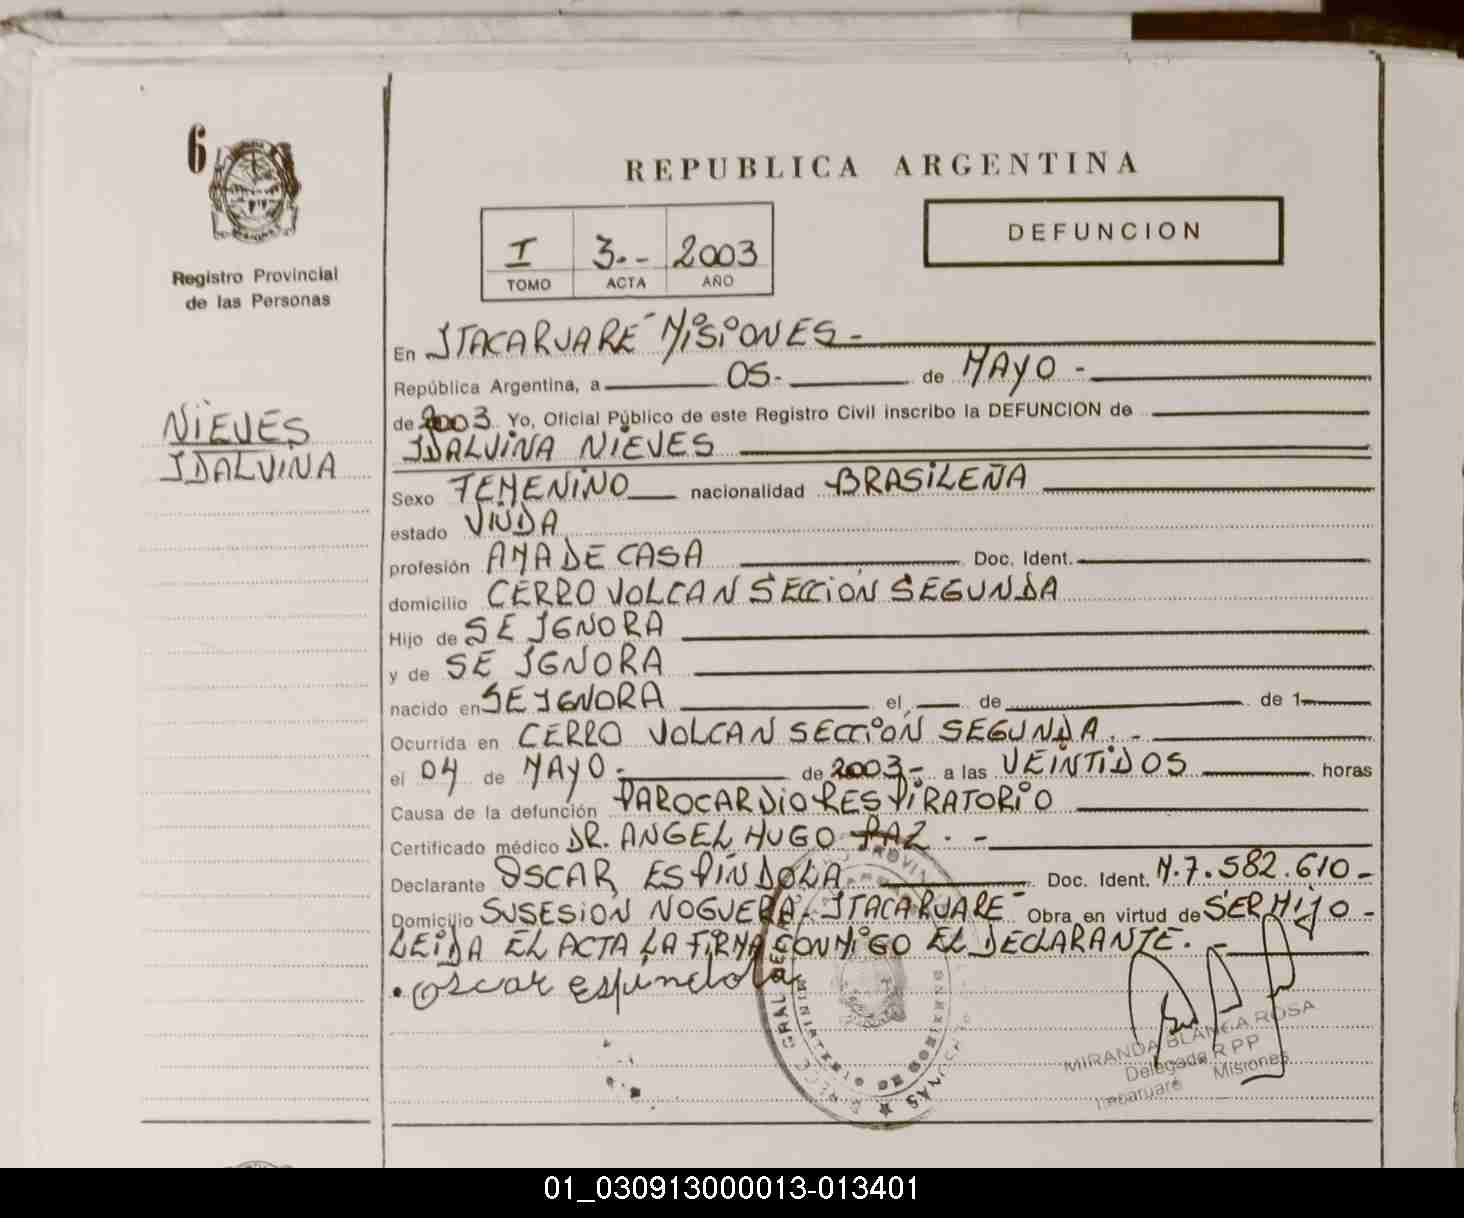 6
REPUBLICA ARGENTINA
I 3.- 2003
TOMO ACTA AÑO
DEFUNCION
Registro Provincial
de las Personas
NIEVES
IDALVINA
En ITACARUARE - MISIONES -
República Argentina, a 05.- de MAYO -
de 2003 Yo, Oficial Público de este Registro Civil inscribo la DEFUNCION de
IDALVINA NIEVES
Sexo FEMENINO nacionalidad BRASILEÑA
estado VIUDA
profesión AMA DE CASA Doc. Ident.
domicilio CERRO VOLCAN SECCION SEGUNDA
Hijo de SE IGNORA
y de SE IGNORA
nacido en SE IGNORA el de de 1
Ocurrida en CERRO VOLCAN SECCION SEGUNDA. -
el 04 de MAYO - de 2003 - a las VEINTIDOS horas
Causa de la defunción PAROCARDIO RESPIRATORIO
Certificado médico DR. ANGEL HUGO PAZ . -
Declarante OSCAR ESPINDOLA Doc. Ident. M.7.582.610 -
Domicilio SUSESION NOGUERA - ITACARUARE - Obra en virtud de SER HIJO -
LEIDA EL ACTA LA FIRMA CONMIGO EL DECLARANTE. -
. oscar espindola
MIRANDA BLANCA ROSA
Delegada R P P
Itacaruaré Misiones
01_030913000013-013401